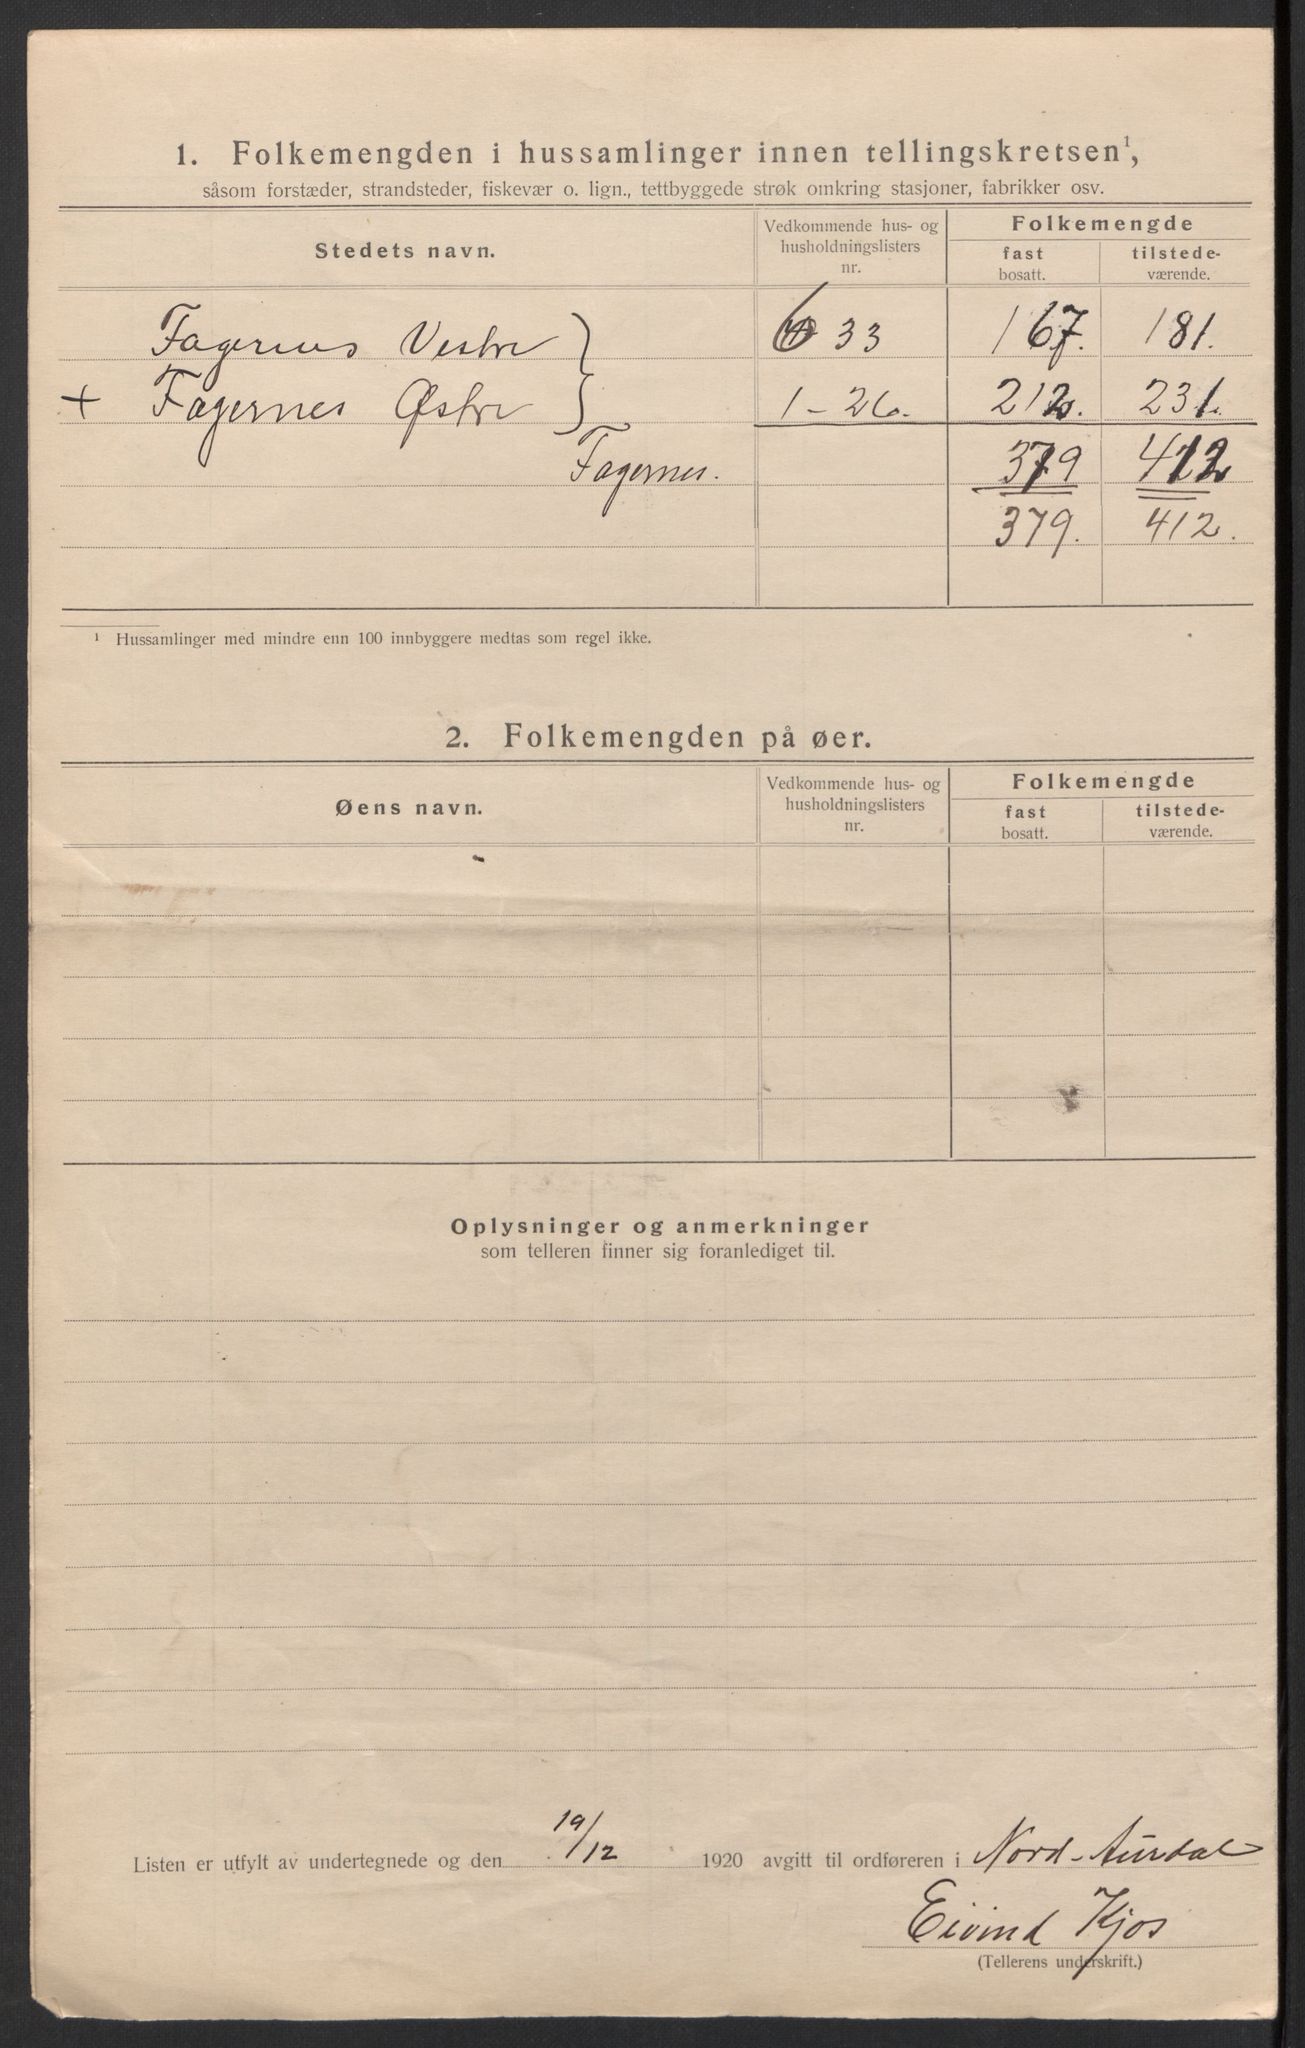 1. Folkemengden i hussamlinger innen tellingskretsen¹,
såsom forstæder, strandsteder, fiskevær o. lign., tettbyggede strøk omkring stasjoner, fabrikker osv.
Stedets navn.
Vedkommende hus- og husholdningslisters nr.
Folkemengde
fast bosatt.
tilstede-værende.
Fagernes Vestre } 33 167. 181.
+ Fagernes Østre } 1-26. 212. 231.
Fagernes. 379 412
379. 412.
¹ Hussamlinger med mindre enn 100 innbyggere medtas som regel ikke.
2. Folkemengden på øer.
Øens navn.
Vedkommende hus- og husholdningslisters nr.
Folkemengde
fast bosatt.
tilstede-værende.
Oplysninger og anmerkninger
som telleren finner sig foranlediget til.
Listen er utfylt av undertegnede og den 19/12 1920 avgitt til ordføreren i Nord-Aurdal
Eivind Kjos
(Tellerens underskrift.)